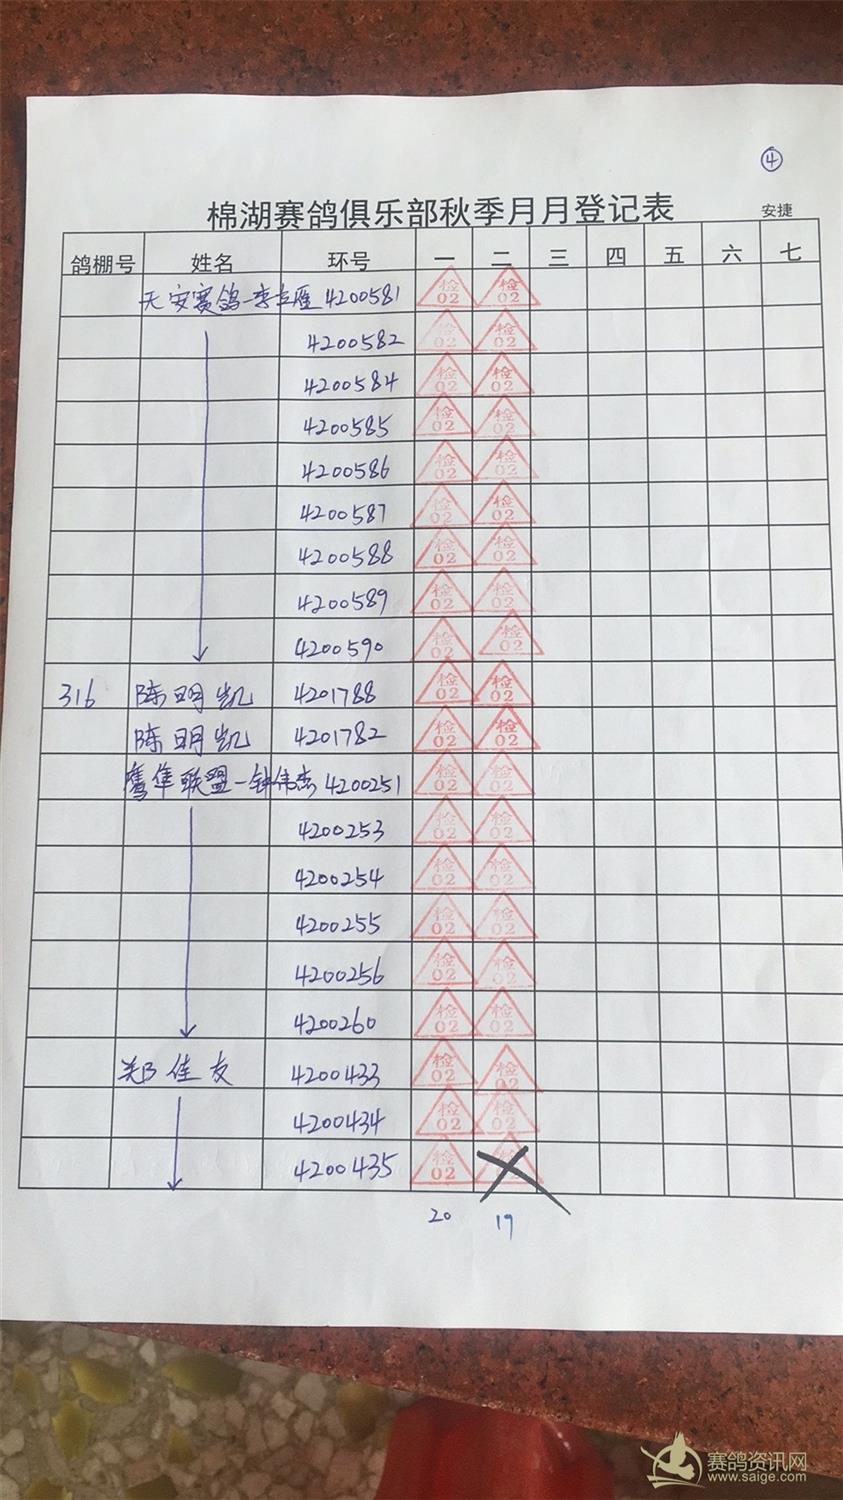 ④
棉湖赛鸽俱乐部秋季月月登记表 安捷
鸽棚号 姓名 环号 一 二 三 四 五 六 七
天安赛鸽-李立雁 4200581 检02 检02
4200582 检02 检02
4200584 检02 检02
4200585 检02 检02
4200586 检02 检02
4200587 检02 检02
4200588 检02 检02
4200589 检02 检02
4200590 检02 检02
316 陈明凯 4201788 检02 检02
陈明凯 4201782 检02 检02
鹰隼联盟-钟伟杰 4200251 检02 检02
4200253 检02 检02
4200254 检02 检02
4200255 检02 检02
4200256 检02 检02
4200260 检02 检02
郑佳友 4200433 检02 检02
4200434 检02 检02
4200435 检02
20 19
赛鸽资讯网
www.saige.com